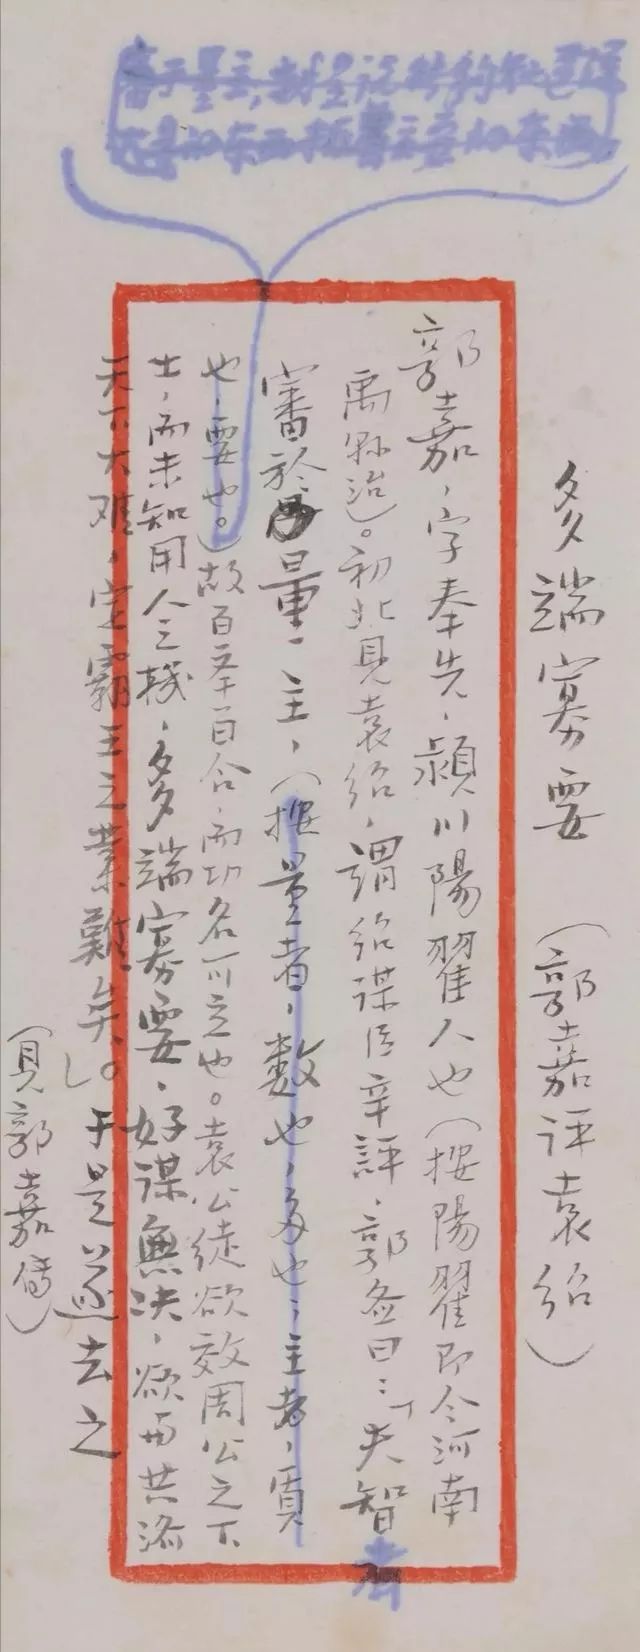 多端寡要（郭嘉评袁绍）
郭嘉，字奉先，颍川陽翟人也（按陽翟即今河南
禹縣治）。初北見袁绍，謂绍谋臣辛評、郭图曰：「夫智者
審於量主，（按量者，数也，多也；主者，頁
也，要也。）故百举百合，而功名可立也。袁公徒欲效周公之下
士，而未知用人之機，多端寡要，好谋無决，欲與共济
天下大难，定霸王之業難矣」。于是遂去之
（見郭嘉傳）